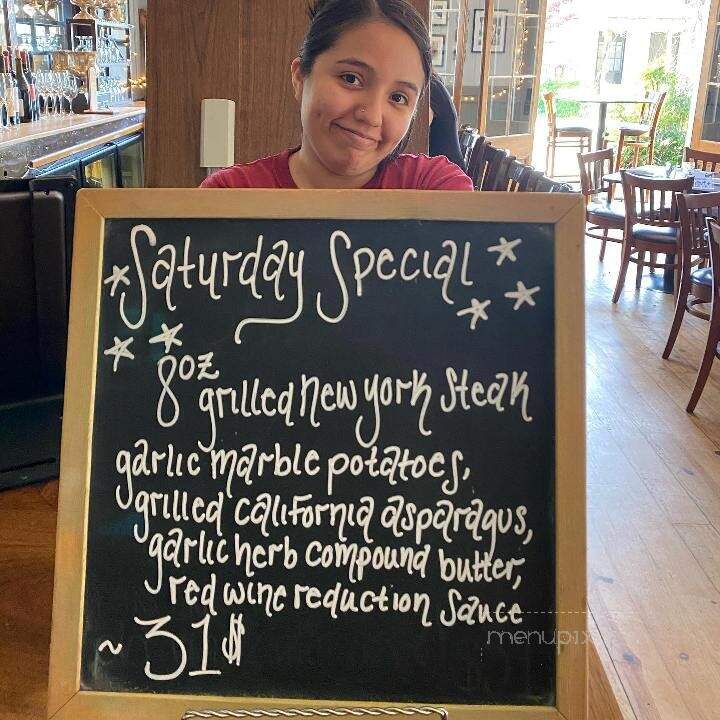 Saturday Special
8oz grilled new york steak
garlic marble potatoes,
grilled california asparagus,
garlic herb compound butter,
red wine reduction sauce
~ 31$
menupix